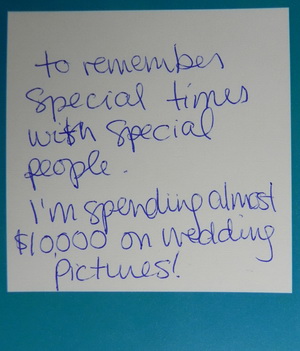 to remember
special times
with special
people.
I'm spending almost
$10,000 on wedding
pictures!